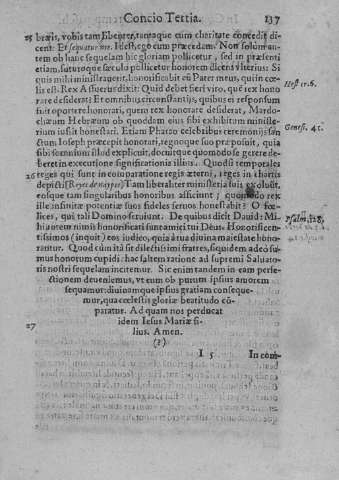 Concio Tertia. 137
25 bræis, vobis tam libenter, tamque cum charitate concedit di
cent: Et sequatur me. Id est, ego cum præcedem. Non solùm au-
tem ob hanc sequelam hic gloriam pollicetur, sed in præsenti
etiam, futuroque sæculo pollicetur honorem dicens vlterius: Si
quis mihi ministrauerit, honorificabit eũ Pater meus, qui in cœ-
lis est. Rex Assuerus dixit: Quid debet fieri viro, que rex hono
rare desiderat? Et omnibus circunstantijs, quibus ei responsum
fuit oportere honorari, quem rex honorare desiderat, Mardo-
chæum Hebræum ob quoddem eius sibi exhibitum ministe-
rium iussit honestari. Etiam Pharao celebribus ceremonijs san
ctum Ioseph præcepit honorari, regnoque suo præposuit, quia
sibi somnium illud explicuit, docuitque quomodo se gerere de-
beret in executione significationis illius. Quòd si temporales
26 reges qui sunt in comparatione regis æterni, reges in chartis
depicti [Reyes de naypes] Tam liberaliter ministeria sui exoluũt,
eosque tam singularibus honoribus afficiunt; quomodo rex
ille infinitæ potentiæ suos fideles seruos honestabit? O fœ-
lices, qui tali Domino seruiunt. De quibus dicit Dauid: Mi-
hi autem nimis honorificati sunt amici tui Deus. Honorificen-
tissimos (inquit) eos iudico, quia à tua diuina maiestate hono-
rantur. Quod cùm ita sit dilectissimi fratres, siquidem adeò su-
mus honorum cupidi: hac saltem ratione ad supremi Saluato-
ris nostri sequelam incitemur. Sic enim tandem in eam perfe-
ctionem deueniemus, vt eum ob punctum ipsius amorem
sequamur: diuinamque ipsius gratiam conseque-
mur, qua cœlestis gloriæ beatitudo cõ-
paratur. Ad quam nos perducat
27 idem Iesus Mariæ fi-
lius. Amen.
(?)
I 5 In com-
Hest. 6.
Genes. 41.
Psalm. 138.